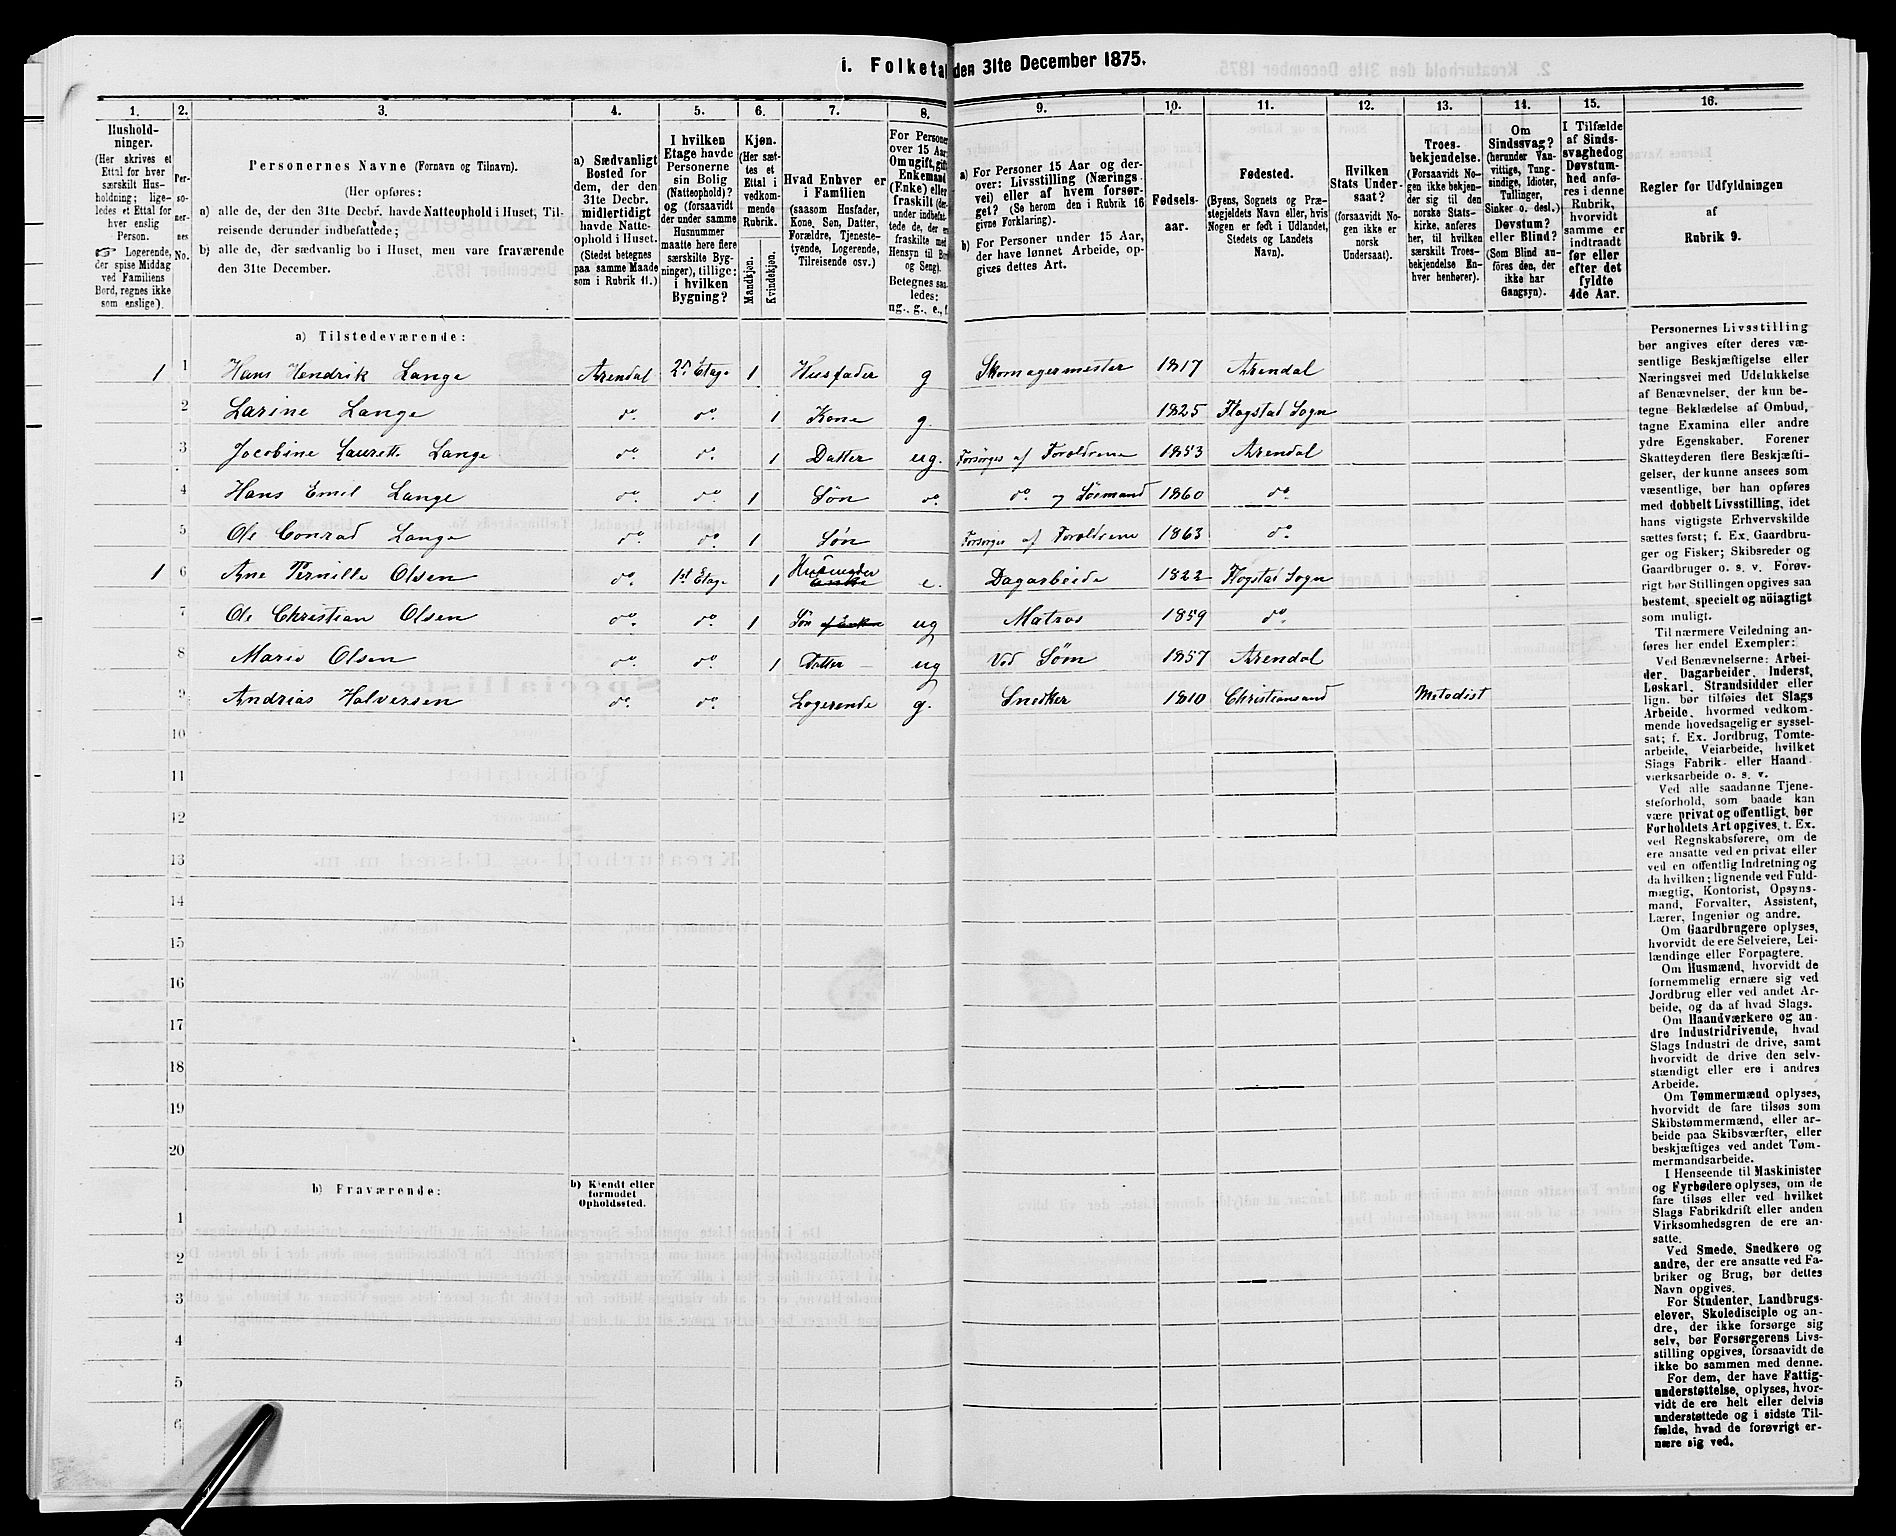 1. Folketa den 31te December 1875.
1. 2. 3. 4. 5. 6. 7. 8. 9. 10. 11. 12. 13. 14. 15. 16.
Hushold-
ninger.
(Her skrives et
Ettal for hver
særskilt Hus-
holdning; lige-
ledes et Ettal for
hver enslig
Person.
☞ Logerende,
der spise Middag
ved Familiens
Bord, regnes ikke
som enslige).
Per-
so-
ner-
nes
No.
Personernes Navne (Fornavn og Tilnavn).
(Her opføres:
a) alle de, der den 31te Decbr. havde Natteophold i Huset, Til-
reisende derunder indbefattede;
b) alle de, der sædvanlig bo i Huset, men vare fraværende
den 31te December.
a) Sædvanligt
Bosted for
dem, der den
31te Decbr.
midlertidigt
havde Natte-
ophold i Huset.
(Stedet betegnes
paa samme Maade
som i Rubrik 11.)
I hvilken
Etage havde
Personerne
sin Bolig
(Natteophold)?
og (forsaavidt
der under samme
Husnummer
maatte høre flere
særskilte Byg-
ninger), tillige:
i hvilken
Bygning?
Kjøn.
(Her sæt-
tes et
Ettal i
vedkom-
mende
Rubrik.
Mandkjøn.
Kvindekjøn.
Hvad Enhver er
i Familien
(saasom Husfader,
Kone, Søn, Datter,
Forældre, Tjeneste-
tyende, Logerende,
Tilreisende osv.)
For Personer
over 15 Aar
Om ugift, gift
Enkemand
(Enke) eller
fraskilt (der-
under indbefat-
tede de, der ere
fraskilte med
Hensyn til Bord
og Seng).
Betegnes saa-
ledes:
ug., g., e., f.
a) For Personer 15 Aar og der-
over: Livsstilling (Nærings-
vei) eller af hvem forsør-
get? (Se herom den i Rubrik 16
givne Forklaring).
b) For Personer under 15 Aar,
der have lønnet Arbeide, op-
gives dettes Art.
Fødsels-
aar.
Fødested.
(Byens, Sognets og Præ-
stegjeldets Navn eller, hvis
Nogen er født i Udlandet,
Stedets og Landets
Navn).
Hvilken
Stats Under-
saat?
(forsaavidt No-
gen ikke er
norsk
Undersaat).
Troes-
bekjendelse.
(Forsaavidt No-
gen ikke bekjen-
der sig til den
norske Stats-
kirke, anføres
her, til hvilken
særskilt Troes-
bekjendelse En-
hver henhører).
Om
Sindssvag?
(herunder Van-
vittige, Tung-
sindige, Idioter,
Tullinger,
Sinker o. desl.)
Døvstum?
eller Blind?
(Som Blind an-
føres den, der
ikke har
Gangsyn).
I Tilfælde
af Sinds-
svaghed og
Døvstum-
hed anfø-
res i denne
Rubrik,
hvorvidt
samme er
indtraadt
før eller
efter det
fyldte
4de Aar.
Regler for Udfyldningen
af
Rubrik 9.
a) Tilstedeværende:
1 1 Hans Hendrik Lange Arendal 2n Etage 1 Husfader g Skomagermester 1817 Arendal
2 Larine Lange do. do. 1 Kone g. 1825 Flogstad Sogn
3 Jacobine Laurette Lange do. do. 1 Datter ug. Forsørges af Foroldrene 1853 Arendal
4 Hans Emil Lange do. do. 1 Søn do. do og Sømand 1860 do.
5 Ole Conrad Lange do. do. 1 Søn Forsørges af Foroldrene 1863 do.
1 6 Ane Pernille Olsen do. 1st Etage 1 Husmoder Enke e. Dagarbeide 1822 Flogstad Sogn
7 Ole Christian Olsen do. do. 1 Søn af Enke ug Matros 1859 do.
8 Marie Olsen do. do. 1 Datter ug Ved Søm 1857 Arendal
9 Andrias Halversen do. do. Logerende g. Snedker 1810 Christiansand Metodist
10
11
12
13
14
15
16
17
18
19
20
b) Fraværende:
b) Kjendt eller
formodet
Opholdssted.
1
2
3
4
5
6
Personernes Livsstilling
bør angives efter deres væ-
sentlige Beskjæftigelse eller
Næringsvei med Udelukkelse
af Benævnelser, der kun be-
tegne Beklædelse af Ombud,
tagne Examina eller andre
ydre Egenskaber. Forener
Skatteyderen flere Beskjæfti-
gelser, der kunne ansees som
væsentlige, bør han opføres
med dobbelt Livsstilling, idet
hans vigtigste Erhvervskilde
sættes først; f. Ex. Gaardbru-
ger og Fisker; Skibsreder og
Gaardbruger o. s. v. Forøv-
rigt bør Stillingen opgives saa
bestemt, specielt og nöiagtigt
som muligt.
Til nærmere Veiledning an-
føres her endel Exempler:
Ved Benævnelserne: Arbei-
der, Dagarbeider, Inderst,
Løskarl, Strandsidder eller
lign. bør tilføies det Slags
Arbeide, hvormed vedkom-
mende hovedsagelig er syssel-
sat; f. Ex. Jordbrug, Tomte-
arbeide, Veiarbeide, hvilket
Slags Fabrik- eller Haand-
værksarbeide o. s. v.
Ved alle saadanne Tjene-
steforhold, som baade kan
være privat og offentligt, bør
Forholdets Art opgives, t. Ex.
ved Regnskabsførere, om de
ere ansatte ved en privat eller
ved en offentlig Indretning og
da hvilken; lignende ved Fuld-
mægtig, Kontorist, Opsyns-
mand, Forvalter, Assistent,
Lærer, Ingeniør og andre.
Om Gaardbrugere oplyses,
hvorvidt de ere Selveiere, Lei-
lændinge eller Forpagtere.
Om Husmænd, hvorvidt de
fornemmelig ernære sig ved
Jordbrug eller ved andet Ar-
beide, og da af hvad Slags.
Om Haandværkere og an-
dre Industridrivende, hvad
Slags Industri de drive, samt
hvorvidt de drive den selv-
stændigt eller ere i andres
Arbeide.
Om Tømmermænd oplyses,
hvorvidt de fare tilsøs som
Skibstømmermænd, eller ar-
beide paa Skibsværfter, eller
beskjæftiges ved andet Tøm-
mermandsarbeide.
I Henseende til Maskinister
og Fyrbødere oplyses, om de
fare tilsøs eller ved hvilket
Slags Fabrikdrift eller anden
Virksomhedsgren de ere an-
satte.
Ved Smede, Snedkere og
andre, der ere ansatte ved Fa-
briker og Brug, bør dettes
Navn opgives.
For Studenter, Landbrugs-
elever, Skoledisciple og an-
dre, der ikke forsørge sig
selv, bør Forsørgerens Livs-
stilling opgives, forsaavidt de
ikke bo sammen med denne.
For dem, der have Fattig-
understøttelse, oplyses, hvor-
vidt de ere helt eller delvis
understøttede og i sidste Til-
fælde, hvad de forøvrigt er-
nære sig ved.